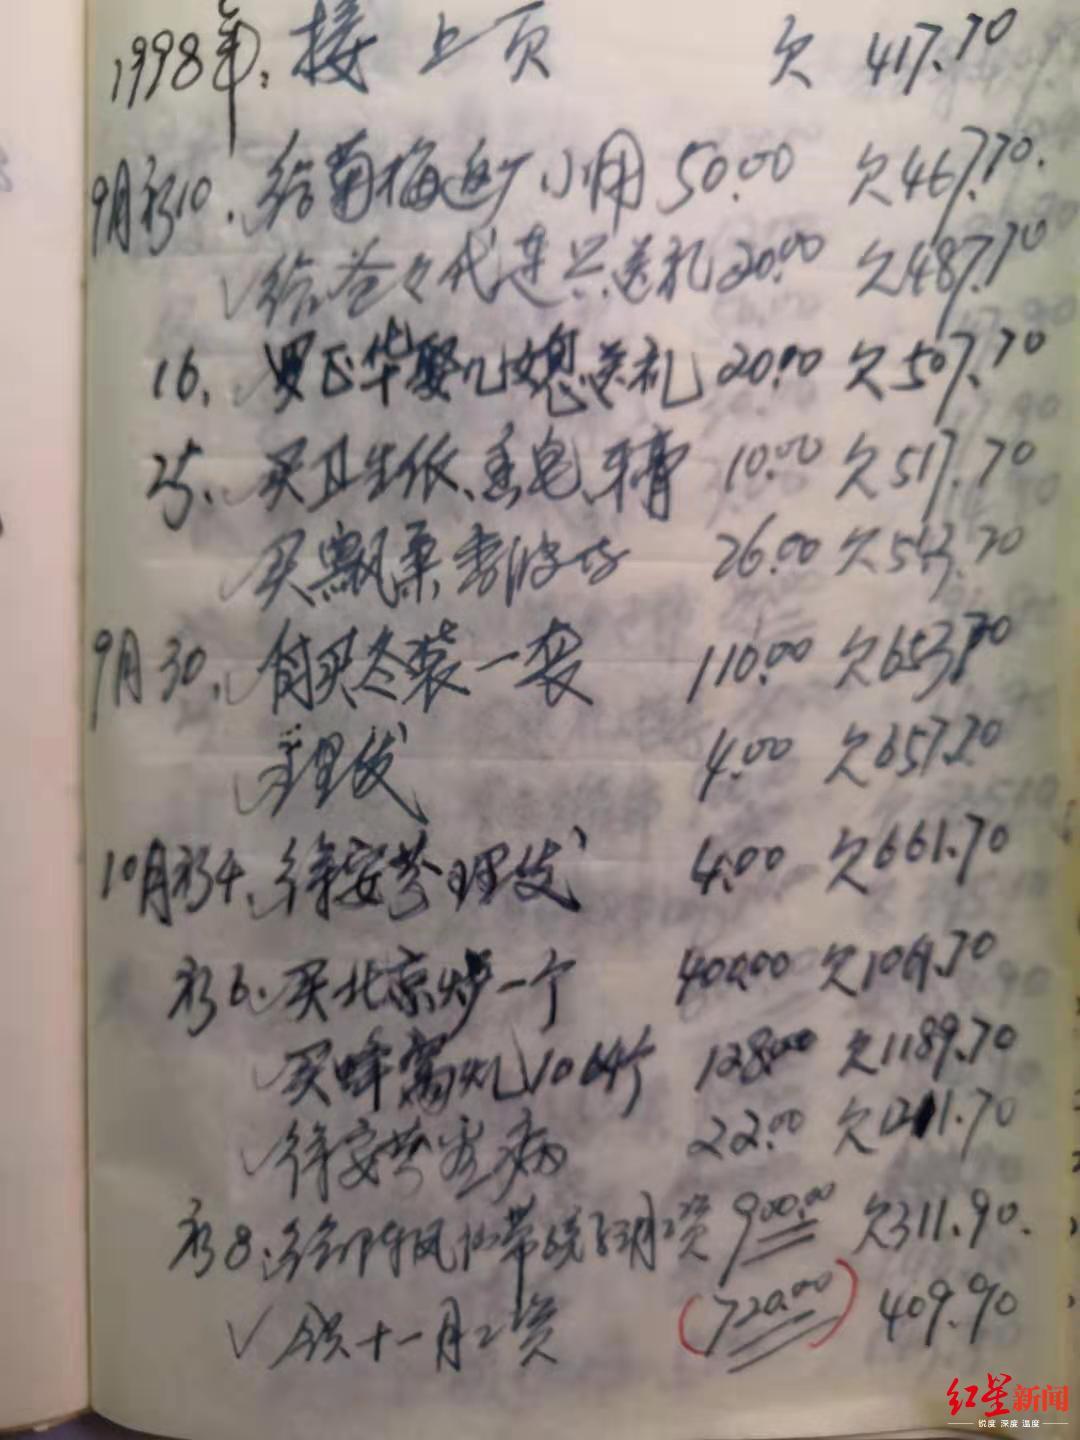 1998年: 接上页 欠 417.70
9月初10. 给菊梅 小用 50.00 欠467.70.
√给爷々代连兴送礼 20.00 欠487.70
16. √罗正华娶儿媳送礼 20.00 欠507.70
25. √买卫生纸、香皂、牙膏 10.00 欠517.70
√买飘柔 26.00 欠543.70
9月30. √付买冬装一套 110.00 欠653.70
√理发 4.00 欠657.70
10月初4. √徐安芬理发 4.00 欠661.70
初6. √买北京炉一个 400.00 欠1061.70
√买蜂窝 128.00 欠1189.70
√徐安芬看病 22.00 欠1211.70
初8. √给 带 月工资 900.00 欠311.90.
√领十一月工资 (720.00) 409.90
红星新闻
锐度 深度 温度